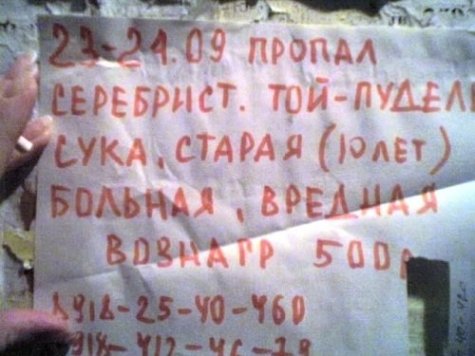 23-24.09 ПРОПАЛ
СЕРЕБРИСТ. ТОЙ-ПУДЕЛЬ
СУКА, СТАРАЯ (10 ЛЕТ)
БОЛЬНАЯ, ВРЕДНАЯ
ВОЗНАГР 500р
8918-25-40-460